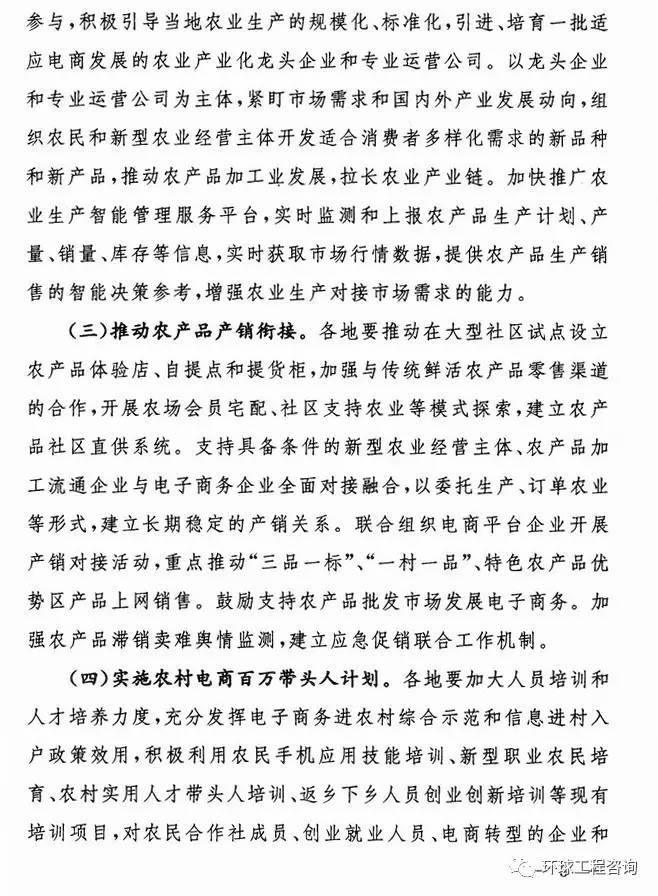 参与，积极引导当地农业生产的规模化、标准化，引进、培育一批适
应电商发展的农业产业化龙头企业和专业运营公司。以龙头企业
和专业运营公司为主体，紧盯市场需求和国内外产业发展动向，组
织农民和新型农业经营主体开发适合消费者多样化需求的新品种
和新产品，推动农产品加工业发展，拉长农业产业链。加快推广农
业生产智能管理服务平台，实时监测和上报农产品生产计划、产
量、销量、库存等信息，实时获取市场行情数据，提供农产品生产销
售的智能决策参考，增强农业生产对接市场需求的能力。
（三）推动农产品产销衔接。各地要推动在大型社区试点设立
农产品体验店、自提点和提货柜，加强与传统鲜活农产品零售渠道
的合作，开展农场会员宅配、社区支持农业等模式探索，建立农产
品社区直供系统。支持具备条件的新型农业经营主体、农产品加
工流通企业与电子商务企业全面对接融合，以委托生产、订单农业
等形式，建立长期稳定的产销关系。联合组织电商平台企业开展
产销对接活动，重点推动“三品一标”、“一村一品”、特色农产品优
势区产品上网销售。鼓励支持农产品批发市场发展电子商务。加
强农产品滞销卖难舆情监测，建立应急促销联合工作机制。
（四）实施农村电商百万带头人计划。各地要加大人员培训和
人才培养力度，充分发挥电子商务进农村综合示范和信息进村入
户政策效用，积极利用农民手机应用技能培训、新型职业农民培
育、农村实用人才带头人培训、返乡下乡人员创业创新培训等现有
培训项目，对农民合作社成员、创业就业人员、电商转型的企业和
环球工程咨询